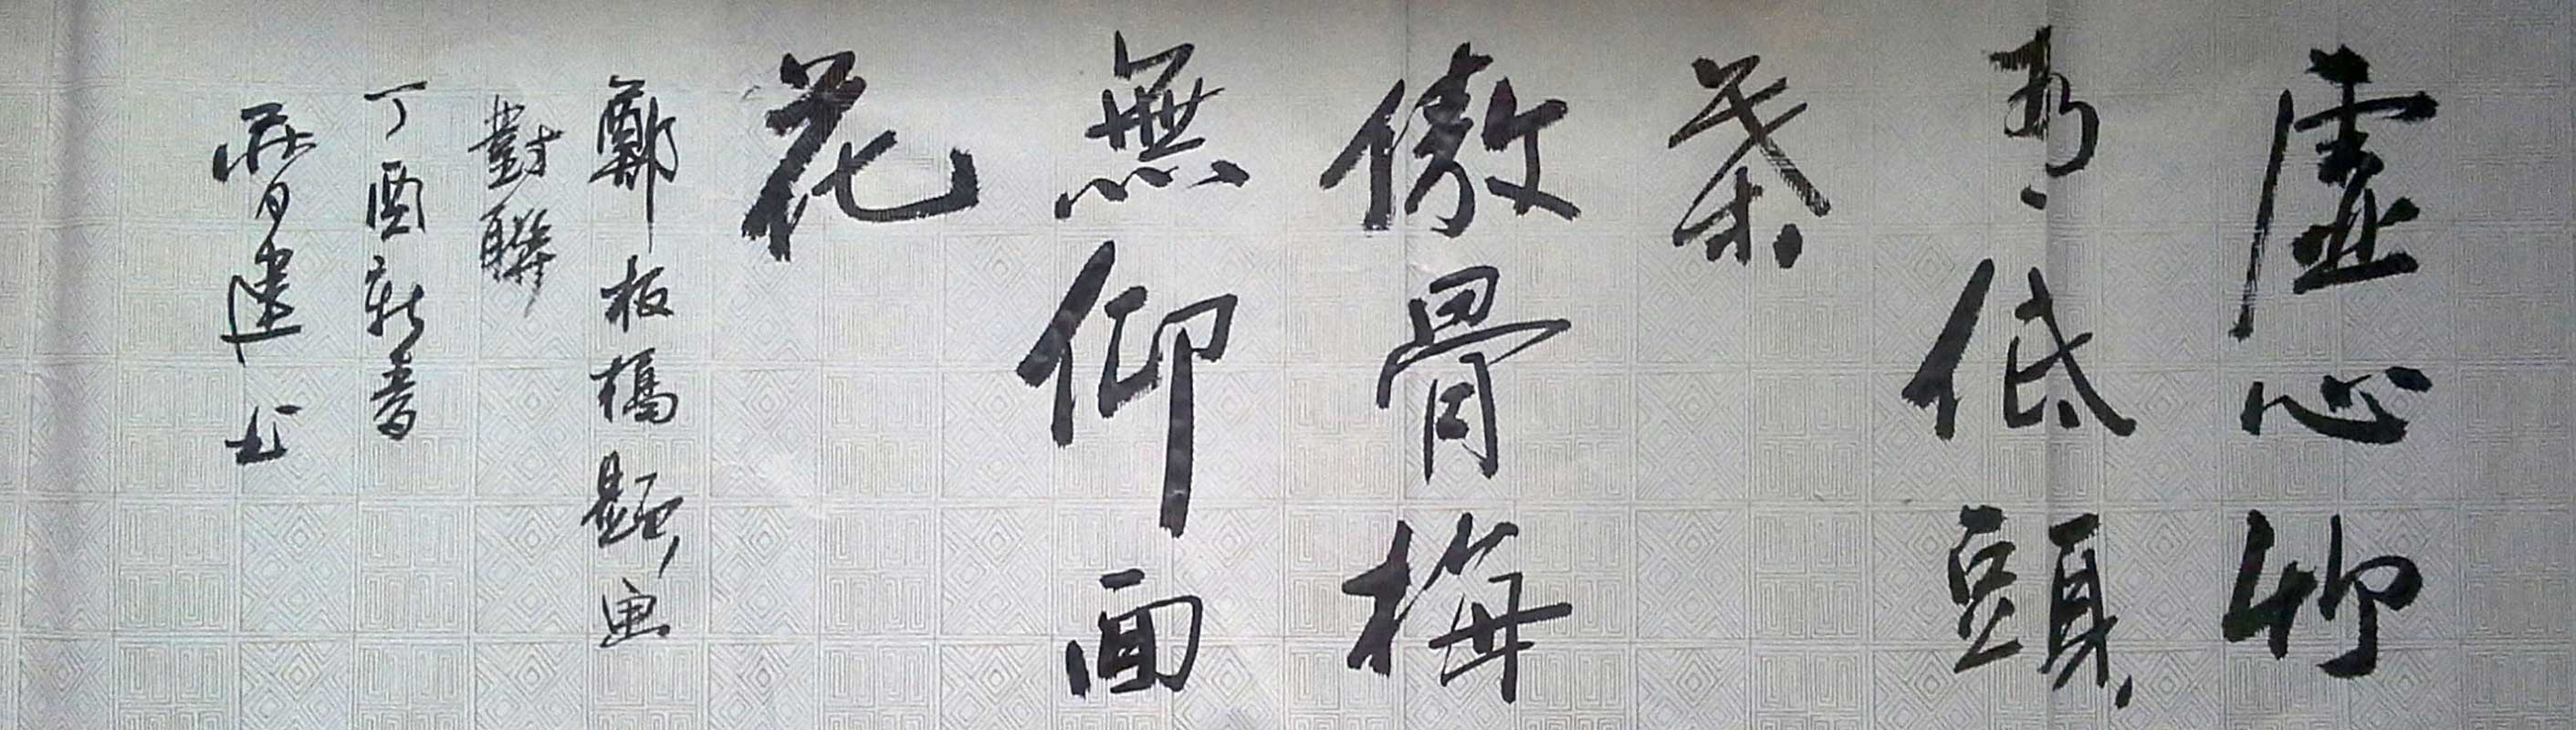 虛心竹
有低頭
葉
傲骨梅
無仰面
花
鄭板橋題画
對聯
丁酉新春
建书